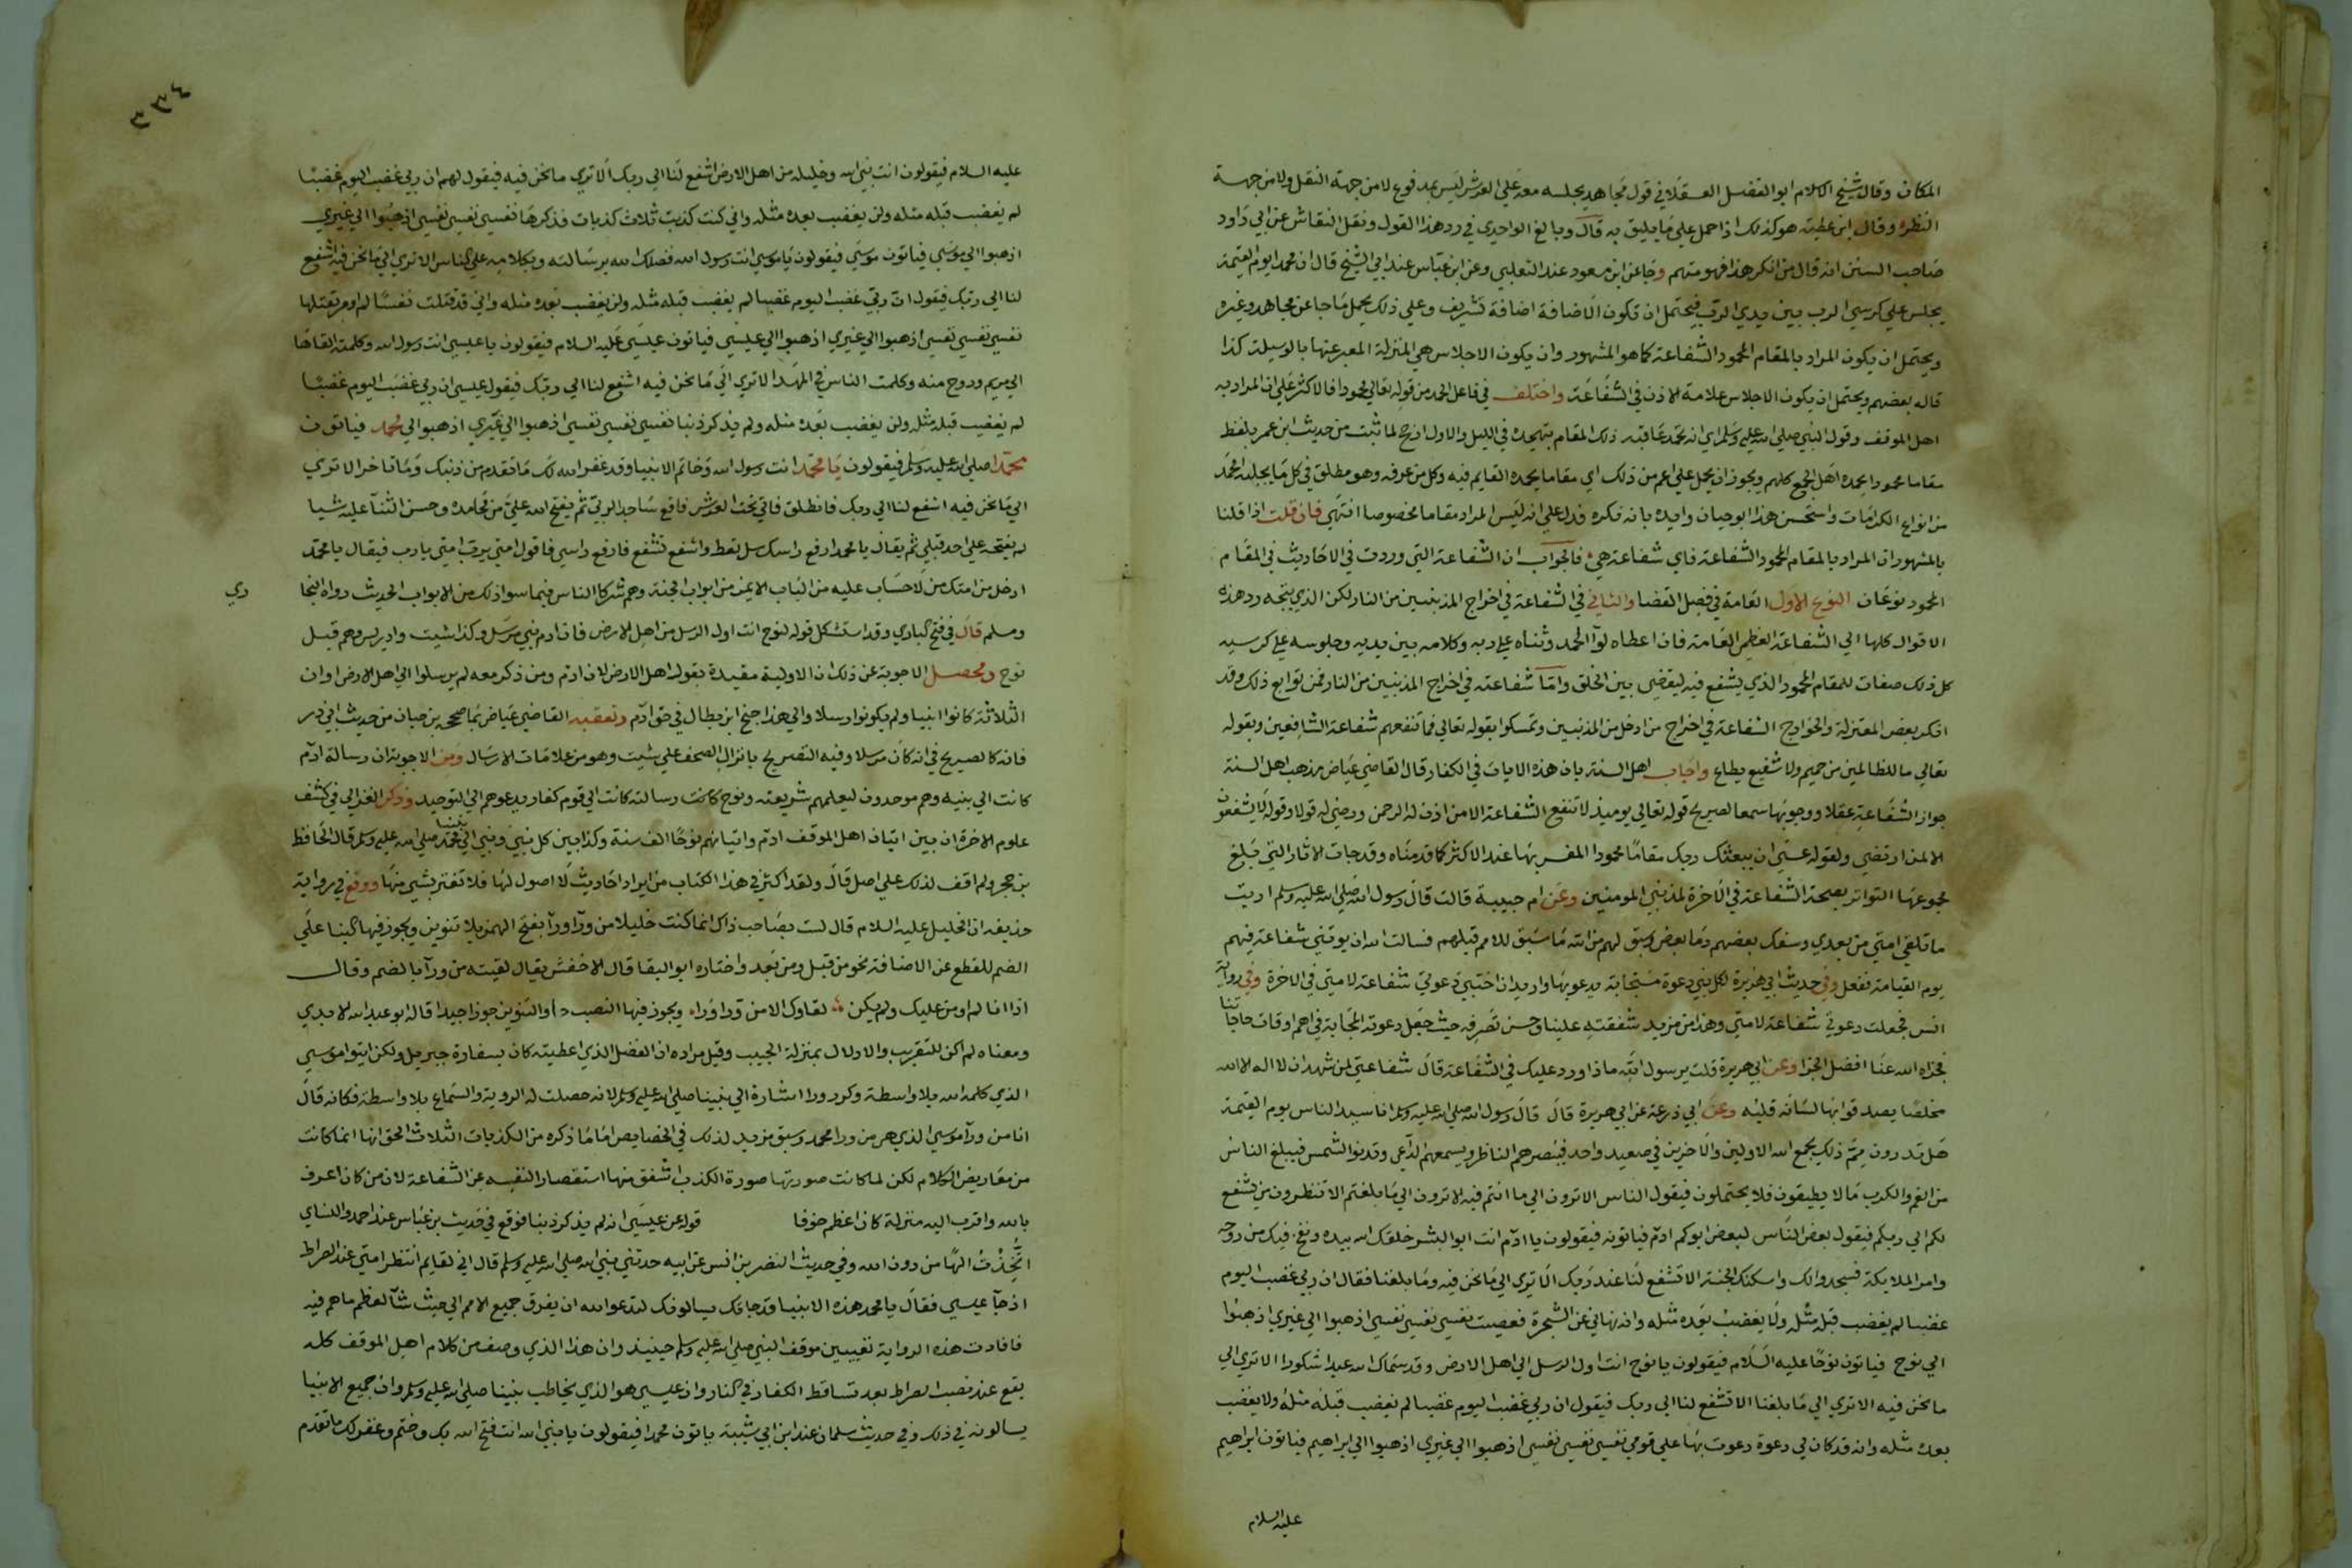 المكان وقال شيخ الاسلام ابو الفضل العسقلاني في قول مجاهد يجلسه معه على العرش ليس بمدفوع لا من جهة النقل ولا من جهة
النظر وقال ابن عطية هو كذلك اذا حمل على ما يليق به قال وبالغ الواحدي في رد هذا القول ونقل النقاش عن ابي داود
صاحب السنن انه قال من انكر هذا فهو متهم وجا عن ابن مسعود عند الثعلبي وعن ابن عباس عند ابي الشيخ قال ان محمدا يوم القيمة
يجلس على كرسي الرب بين يدي الرب فيحتمل ان تكون الاضافة اضافة تشريف وعلى ذلك يحمل ما جا عن مجاهد وغيره
ويحتمل ان يكون المراد بالمقام المحمود الشفاعة كما هو المشهور وان يكون الاجلاس هي المنزلة المعبر عنها بالوسيلة كذا
قاله بعضهم ويحتمل ان يكون الاجلاس علامة للاذن في الشفاعة واختلف في فاعل الحمد من قوله تعالى محمودا فالاكثر على ان المراد به
اهل الموقف وقول النبي صلى الله عليه وسلم اي انه يحمد عاقبة ذلك المقام بتهجده في الليل والاول ارجح لما ثبت من حديث ابن عمر بلفظ
مقاما محمودا يحمده اهل الجمع كلهم ويجوز ان يحمل على اعم من ذلك اي مقاما يحمده القايم فيه وكل من عرفه وهو مطلق في كل ما يجلب الحمد
من انواع الكرامات واستحسن هذا ابو حيان وايده بانه نكره فدل على انه ليس المراد مقاما مخصوصا انتهى فان قلت اذا قلنا
بالمشهور ان المراد بالمقام المحمود الشفاعة فاي شفاعة هي فالجواب ان الشفاعة التي وردت في الاحاديث في المقام
المحمود نوعان النوع الاول العامة في فصل القضا والثاني في الشفاعة في اخراج المذنبين من النار لكن الذي يتجه رد هذه
الاقوال كلها الى الشفاعة العظمى العامة فان اعطاه لوآ الحمد وثناه على ربه وكلامه بين يديه وجلوسه على كرسيه
كل ذلك صفات للمقام المحمود الذي يشفع فيه ليقضى بين الخلق واما شفاعته في اخراج المذنبين من النار فمن توابع ذلك وقد
انكر بعض المعتزلة والخوارج الشفاعة في اخراج من ادخل من المذنبين وتمسكوا بقوله تعالى فما تنفعهم شفاعة الشافعين وبقوله
تعالى ما للظالمين من حميم ولا شفيع يطاع واجاب اهل السنة بان هذه الايات في الكفار قال القاضي عياض مذهب اهل السنة
جواز الشفاعة عقلا ووجوبها سمعا لصريح قوله تعالى يوميذ لا تنفع الشفاعة الا من اذن له الرحمن ورضي له قولا وقوله لا يشفعون
الا لمن ارتضى ولقوله عسى ان يبعثك ربك مقاما محمودا المفسر بها عند الاكثر كما قدمناه وقد جات الاثار التي بلغ
مجموعها التواتر بصحة الشفاعة في الاخرة لمذنبي المومنين وعن ام حبيبة قالت قال رسول الله صلى الله عليه وسلم اريت
ما تلقى امتي من بعدي وسفك بعضهم دما بعض وسبق لهم من الله ما سبق للامم قبلهم فسالت الله ان يوتيني شفاعة فيهم
يوم القيامة ففعل وفي حديث ابي هريرة لكل نبي دعوة مستجابة يدعو بها واريد ان اختبي دعوتي شفاعة لامتي في الاخرة وفي رواية
انس فجعلت دعوتي شفاعة لامتي وهذا من مزيد شفقته علينا وحسن تصرفه حيث جعل دعوته المجابة في اهم اوقات حاجاتنا
فجزاه الله عنا افضل الجزا وعن ابي هريرة قلت يرسول الله ماذا ورد عليك في الشفاعة قال شفاعتي لمن شهد ان لا اله الا الله
مخلصا يصدق لسانه قلبه وعن ابي زرعة عن ابي هريرة قال قال رسول الله صلى الله عليه وسلم انا سيد الناس يوم القيمة
هل تدرون مم ذلك يجمع الله الاولين والاخرين في صعيد واحد فيبصرهم الناظر ويسمعهم الداعي وتدنو الشمس فيبلغ الناس
من الغم والكرب ما لا يطيقون فلا يحتملون فيقول الناس الا ترون الى ما انتم فيه الا ترون الى ما بلغتم الا تنظرون من يشفع
لكم الى ربكم فيقول بعض الناس لبعض ابوكم ادم فياتونه فيقولون يا ادم انت ابو البشر خلقك الله بيده ونفخ فيك من روحه
وامر الملايكة فسجدوا لك واسكنك الجنة الا تشفع لنا عند ربك الا ترى الى ما نحن فيه وما بلغنا فقال ان ربي غضب اليوم
غضبا لم يغضب قبله مثله ولا يغضب بعده مثله وانه نهاني عن الشجرة فعصيت نفسي نفسي نفسي اذهبوا الى غيري اذهبوا
الى نوح فياتون نوحا عليه السلام فيقولون يا نوح انت اول الرسل الى اهل الارض وقد سماك الله عبدا شكورا الا ترى الى
ما نحن فيه الا ترى الى ما بلغنا الا تشفع لنا الى ربك فيقول ان ربي غضب اليوم غضبا لم يغضب قبله مثله ولا يغضب
بعده مثله وانه قد كان لي دعوة دعوت بها على قومي نفسي نفسي نفسي اذهبوا الى غيري اذهبوا الى ابراهيم فياتون ابراهيم
عليه السلام
٣٣٤
عليه السلام فيقولون انت نبي الله وخليله من اهل الارض اشفع لنا الى ربك الا ترى ما نحن فيه فيقول لهم ان ربي غضب اليوم غضبا
لم يغضب قبله مثله ولن يغضب بعده مثله واني كنت كذبت ثلاث كذبات فذكرها نفسي نفسي نفسي اذهبوا الى غيري
اذهبوا الى موسى فياتون موسى فيقولون يا موسى انت رسول الله فضلك الله برسالته وبكلامه على الناس الا ترى الى ما نحن فيه اشفع
لنا الى ربك فيقول ان ربي غضب اليوم غضبا لم يغضب قبله مثله ولن يغضب بعده مثله واني قد قتلت نفسا لم اومر بقتلها
نفسي نفسي نفسي اذهبوا الى غيري اذهبوا الى عيسى فياتون عيسى عليه السلام فيقولون يا عيسى انت رسول الله وكلمته القاها
الى مريم وروح منه وكلمت الناس في المهد الا ترى الى ما نحن فيه اشفع لنا الى ربك فيقول عيسى ان ربي غضب اليوم غضبا
لم يغضب قبله مثله ولن يغضب بعده مثله ولم يذكر ذنبا نفسي نفسي نفسي اذهبوا الى غيري اذهبوا الى محمد فياتون
محمدا صلى الله عليه وسلم فيقولون يا محمد انت رسول الله وخاتم الانبيا وقد غفر الله لك ما تقدم من ذنبك وما تاخر الا ترى
الى ما نحن فيه اشفع لنا الى ربك فانطلق فاتي تحت العرش فاقع ساجدا لربي ثم يفتح الله علي من محامده وحسن الثنآ عليه شيا
لم يفتحه على احد قبلي ثم يقال يا محمد ارفع راسك سل تعط واشفع تشفع فارفع راسي فاقول امتي يرب امتي يا رب فيقال يا محمد
ادخل من امتك من لا حساب عليه من الباب الايمن من ابواب الجنة وهم شركا الناس فيما سوا ذلك من الابواب الحديث رواه البخا
ري
ومسلم قال في فتح الباري وقد استشكل قوله لنوح انت اول الرسل من اهل الارض فان ادم نبي مرسل وكذا شيت وادريس وهم قبل
نوح ومحصل الاجوبة عن ذلك ان الاولية مقيدة بقوله اهل الارض لان ادم ومن ذكر معه لم يرسلوا الى اهل الارض او ان
الثلاثة كانوا انبيا ولم يكونوا رسلا والى هذا جنح ابن بطال في حق ادم وتعقبه القاضي عياض بما صححه بن حبان من حديث ابي ذر
فانه كالصريح في انه كان مرسلا وفيه التصريح بانزال الصحف على شيث وهو من علامات الارسال ومن الاجوبة ان رسالة ادم
كانت الى بنيه وهم موحدون ليعلمهم شريعته ونوح كانت رسالته كانت الى قوم كفار يدعوهم الى التوحيد وذكر الغزالي في كشف
علوم الاخرة ان بين اتيان اهل الموقف ادم واتيانهم نوحا الف سنة وكذا بين كل نبي ونبي الى نبينا محمد صلى الله عليه وسلم قال الحافظ
بن حجر ولم اقف لذلك على اصل قال ولقد اكثر في هذا الكتاب من ايراد احاديث لا اصول لها فلا تغتر بشي منها ووقع في رواية
حذيفه ان الخليل عليه السلام قال لست بصاحب ذاك انما كنت خليلا من ورآ ورآ بفتح الهمز بلا تنوين ويجوز فيها البنا على
الضم للقطع عن الاضافة نحو من قبل ومن بعد واختاره ابو البقا قال الاخفش يقال لقيته من ورآ بالضم وقال
اذا انا لم اومن عليك ولم يكن لقاوك الا من ورا ورا ويجوز فيها النصب والتنوين جوزا جيدا قاله ابو عبد الله الابدي
ومعناه لم اكن للتقريب والادلال بمنزلة الحبيب وقيل مراده ان الفضل الذي اعطيته كان بسفارة جبريل ولكن ايتوا موسى
الذي كلمه الله بلا واسطة وكرر ورا اشارة الى نبينا صلى الله عليه وسلم لانه حصلت له الروية والسماع بلا واسطة فكانه قال
انا من ورآ موسى الذي هو من ورا محمد وسبق مزيد لذلك في الخصايص اما ما ذكره من الكذبات الثلاث الحق انها انما كانت
من معاريض الكلام لكن لما كانت صورتها صورة الكذب اشفق منها استقصارا لنفسه عن الشفاعة لان من كان اعرف
بالله واقرب اليه منزلة كان اعظم خوفا قوله عن عيسى انه لم يذكر ذنبا فوقع في حديث بن عباس عند احمد والنساي
اتخذت الها من دون الله وفي حديث النضر بن انس عن ابيه حدثني نبي الله صلى الله عليه وسلم قال اني لقايم انتظر امتي عند الصراط
اذ جآ عيسى فقال يا محمد هذه الانبيا قد جاتك يسالونك لتدعوا الله ان يفرق جميع الامم الى حيث شآ لعظم ما هم فيه
فافادت هذه الرواية تعيين موقف النبي صلى الله عليه وسلم حينيذ وان هذا الذي وصف من كلام اهل الموقف كله
يقع عند نصب الصراط بعد تساقط الكفار في النار وان عيسى هو الذي يخاطب نبينا صلى الله عليه وسلم وان جميع الانبيا
يسالونه في ذلك وفي حديث سلمان عند ابن ابي شيبة ياتون محمدا فيقولون يا نبي الله انت فتح الله بك وختم وغفر لك ما تقدم